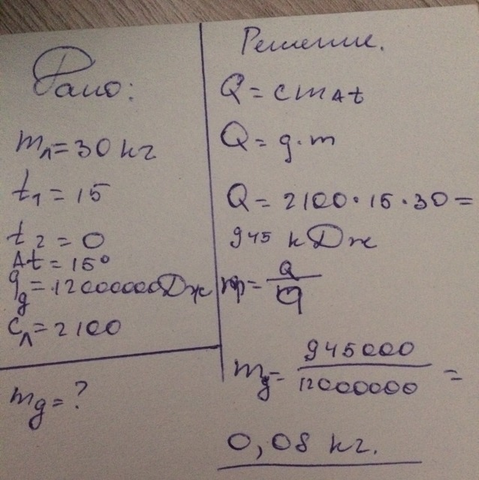 Дано:
mл=30 кг
t1=15
t2=0
Δt=15°
qд=12000000Дж
Cл=2100
mд=?
Решение.
Q=cmΔt
Q=q·m
Q=2100·15·30=
945 кДж
m=Q/q
mд=945000/12000000=
0,08 кг.